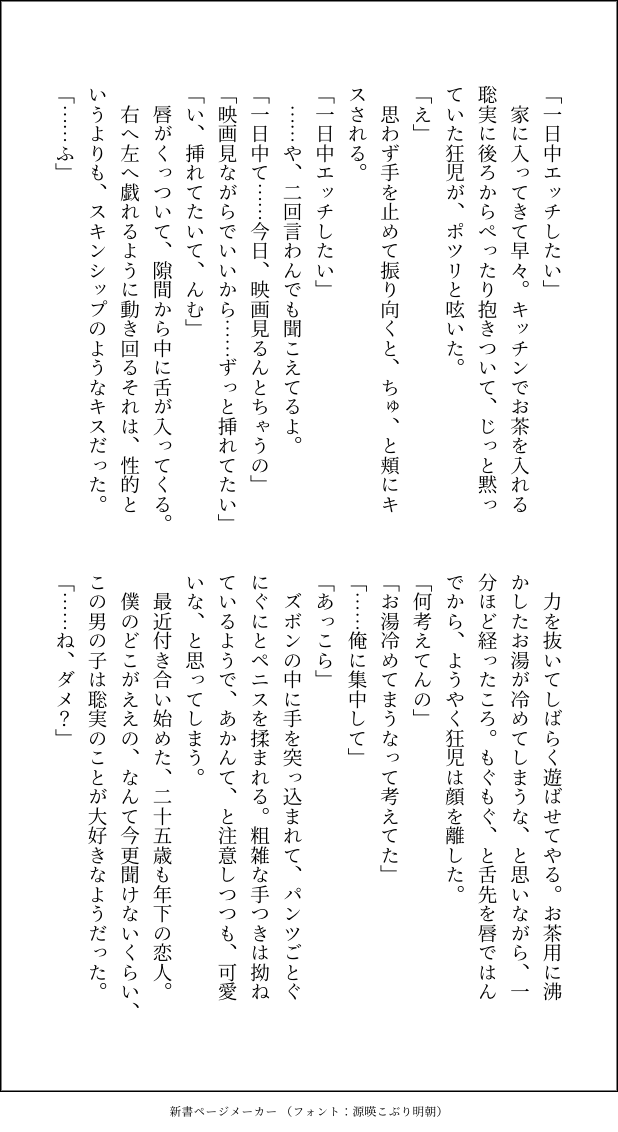 「一日中エッチしたい」
　家に入ってきて早々。キッチンでお茶を入れる
聡実に後ろからぺったり抱きついて、じっと黙っ
ていた狂児が、ポツリと呟いた。
「え」
　思わず手を止めて振り向くと、ちゅ、と頬にキ
スされる。
「一日中エッチしたい」
　……や、二回言わんでも聞こえてるよ。
「一日中て……今日、映画見るんとちゃうの」
「映画見ながらでいいから……ずっと挿れてたい」
「い、挿れてたいて、んむ」
　唇がくっついて、隙間から中に舌が入ってくる。
　右へ左へ戯れるように動き回るそれは、性的と
いうよりも、スキンシップのようなキスだった。
「……ふ」
　力を抜いてしばらく遊ばせてやる。お茶用に沸
かしたお湯が冷めてしまうな、と思いながら、一
分ほど経ったころ。もぐもぐ、と舌先を唇ではん
でから、ようやく狂児は顔を離した。
「何考えてんの」
「お湯冷めてまうなって考えてた」
「……俺に集中して」
「あっこら」
　ズボンの中に手を突っ込まれて、パンツごとぐ
にぐにとペニスを揉まれる。粗雑な手つきは拗ね
ているようで、あかんて、と注意しつつも、可愛
いな、と思ってしまう。
　最近付き合い始めた、二十五歳も年下の恋人。
　僕のどこがええの、なんて今更聞けないくらい、
この男の子は聡実のことが大好きなようだった。
「……ね、ダメ？」
新書ページメーカー（フォント：源暎こぶり明朝）